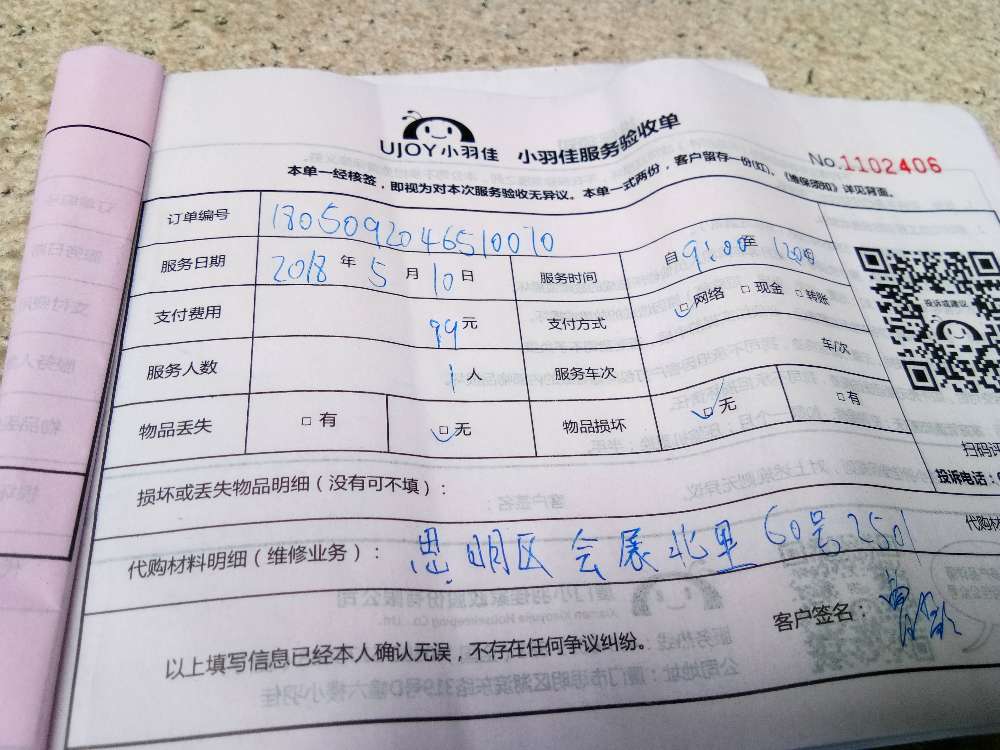 UJOY小羽佳 小羽佳服务验收单
No.1102406
本单一经核签，即视为对本次服务验收无异议。本单一式两份，客户留存一份(红)。《维保须知》详见背面。
订单编号 1805092046510070
服务日期 2018年5月10日 服务时间 自9:00至12:00
支付费用 99元 支付方式 □网络 □现金 □转账
投诉或建议
服务人数 1人 服务车次 车/次
物品丢失 □有 □无 物品损坏 □无 □有
扫码评
损坏或丢失物品明细（没有可不填）：
投诉电话：
代购材料明细（维修业务）： 思明区会展北里60号2501
代购
客户签名：
以上填写信息已经本人确认无误，不存在任何争议纠纷。